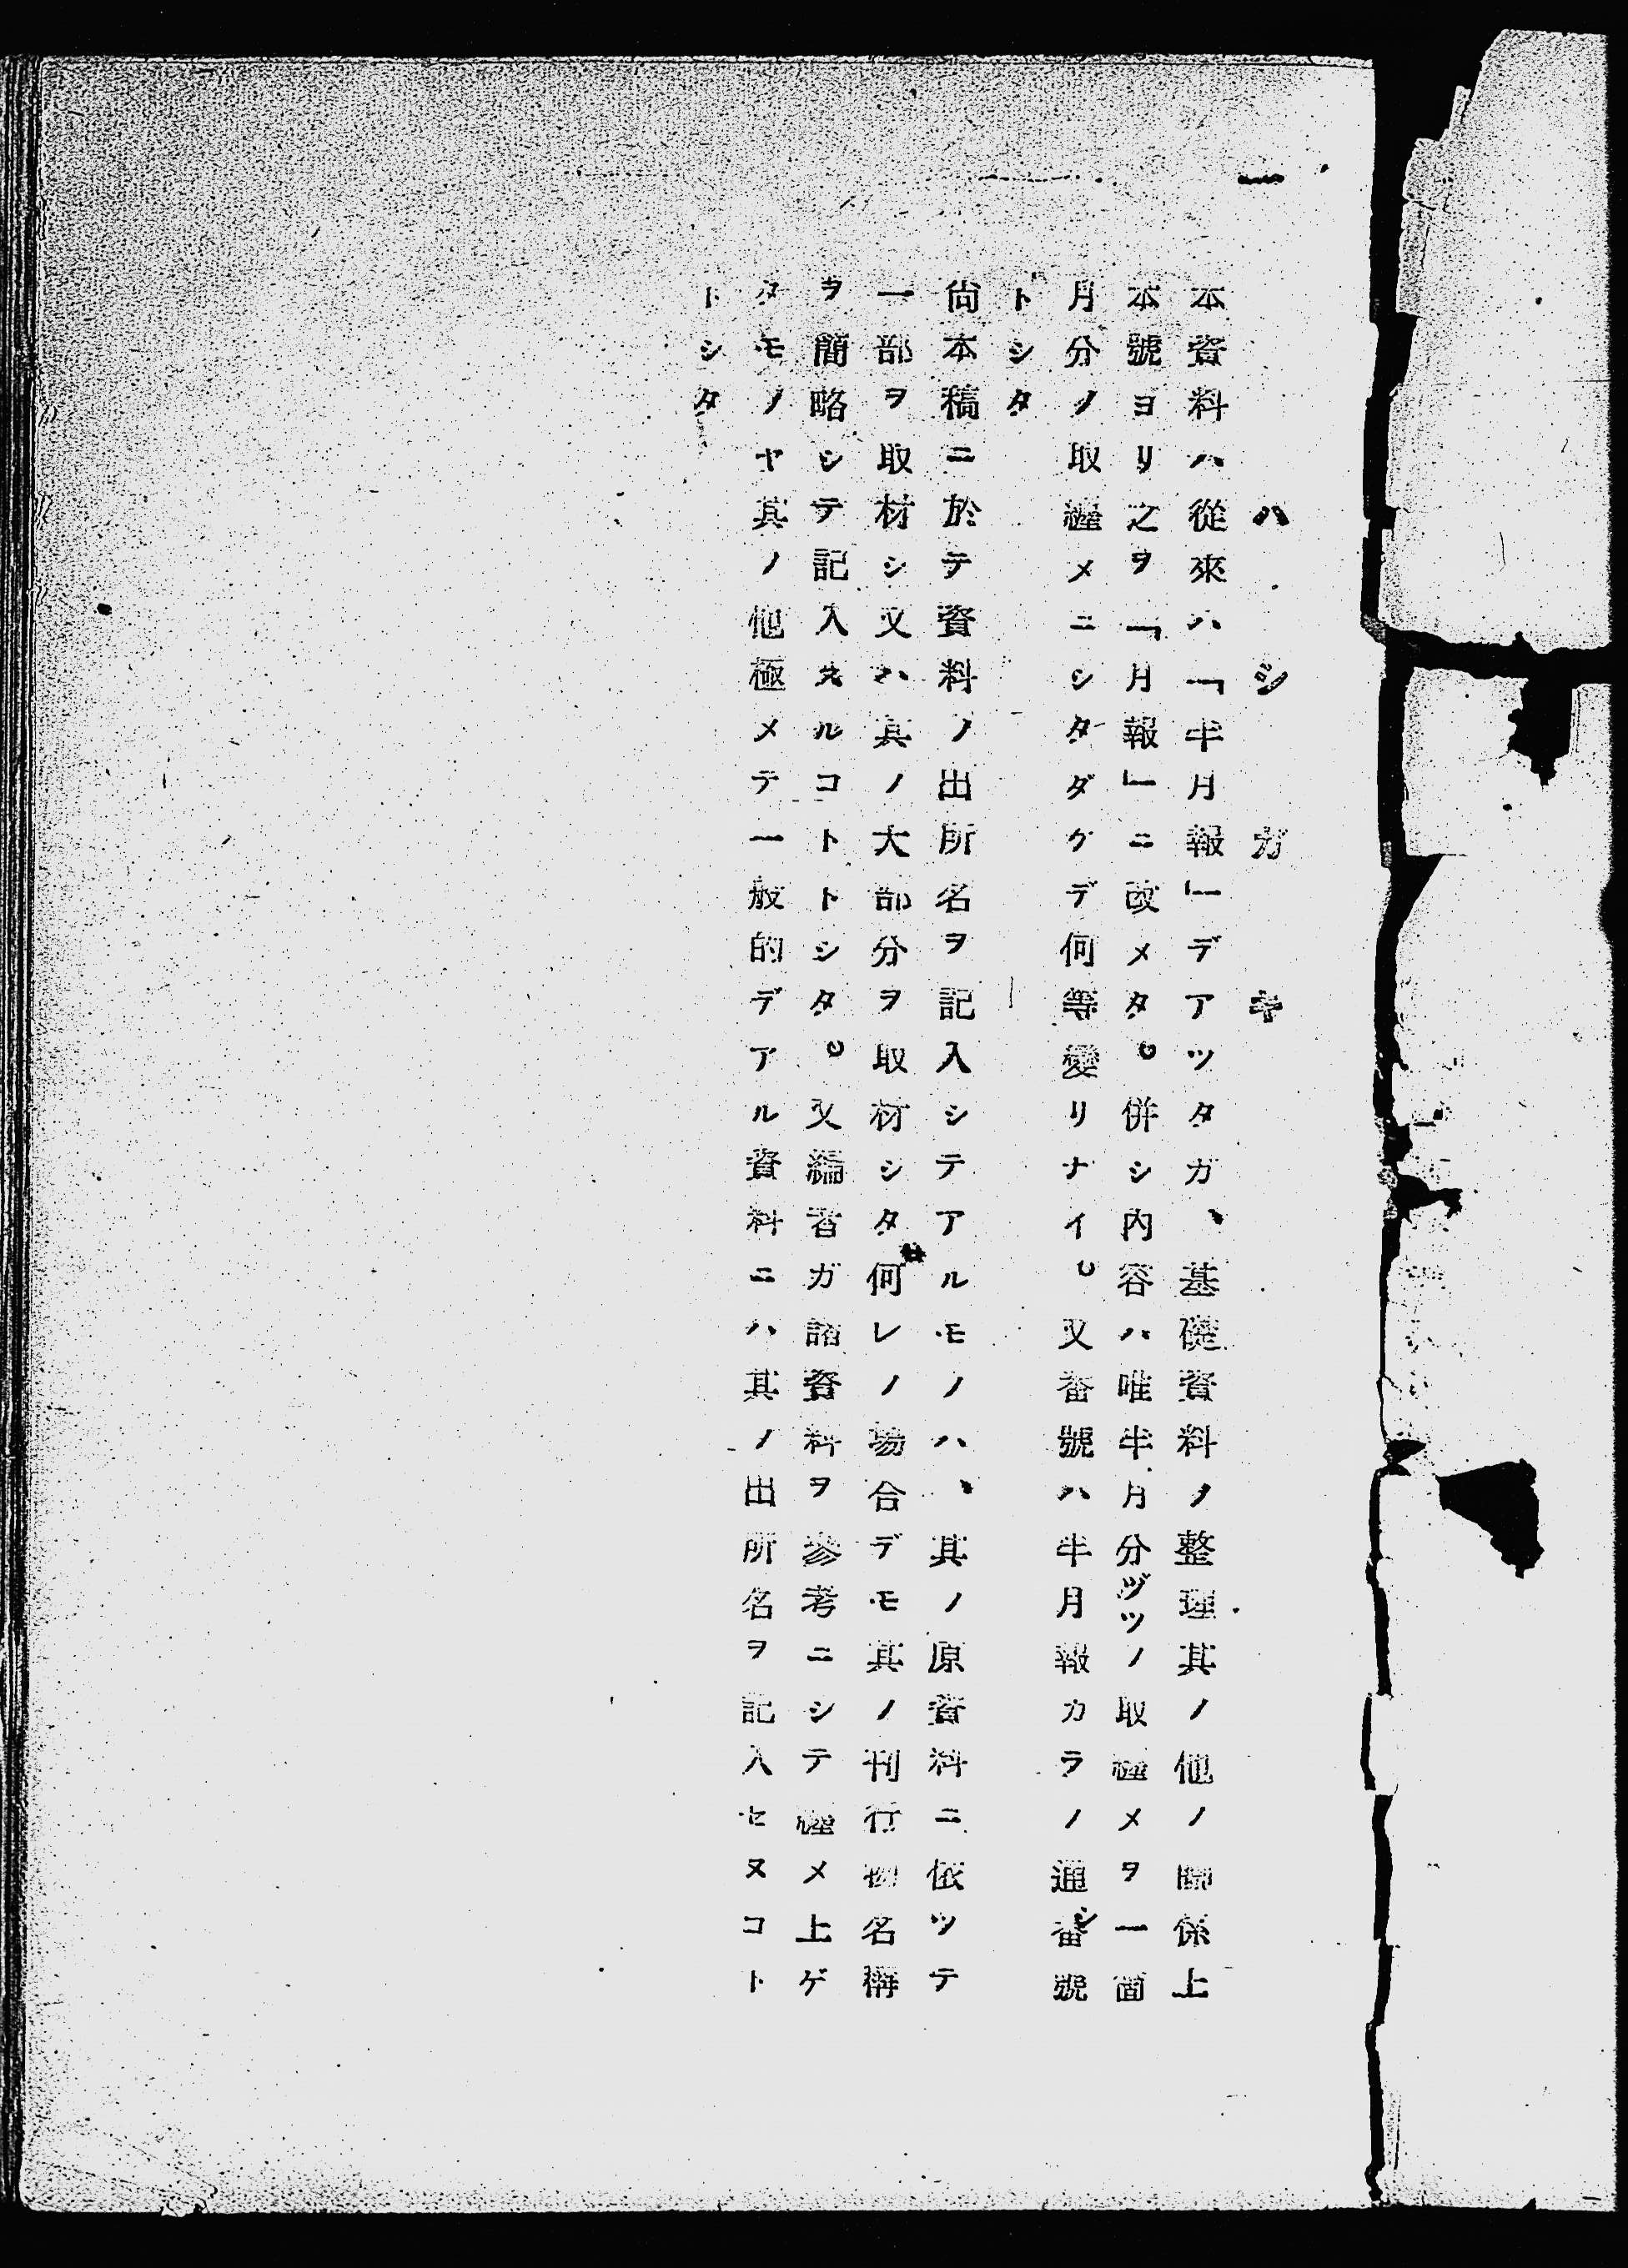 一
ハシガキ
本資料ハ從來ハ「半月報」デアツタガ、基礎資料ノ整理其ノ他ノ關係上
本號ヨリ之ヲ「月報」ニ改メタ。併シ內容ハ唯半月分ヅツノ取纏メヲ一箇
月分ノ取纏メニシタダケデ何等變リナイ。又番號ハ半月報カラノ通シ番號
トシタ
尙本稿ニ於テ資料ノ出所名ヲ記入シテアルモノハ、其ノ原資料ニ依ツテ
一部ヲ取材シ又ハ其ノ大部分ヲ取材シタ何レノ場合デモ其ノ刊行物名稱
ヲ簡略シテ記入スルコトトシタ。又編者ガ諸資料ヲ參考ニシテ纏メ上ゲ
タモノヤ其ノ他極メテ一般的デアル資料ニハ其ノ出所名ヲ記入セヌコト
トシタ